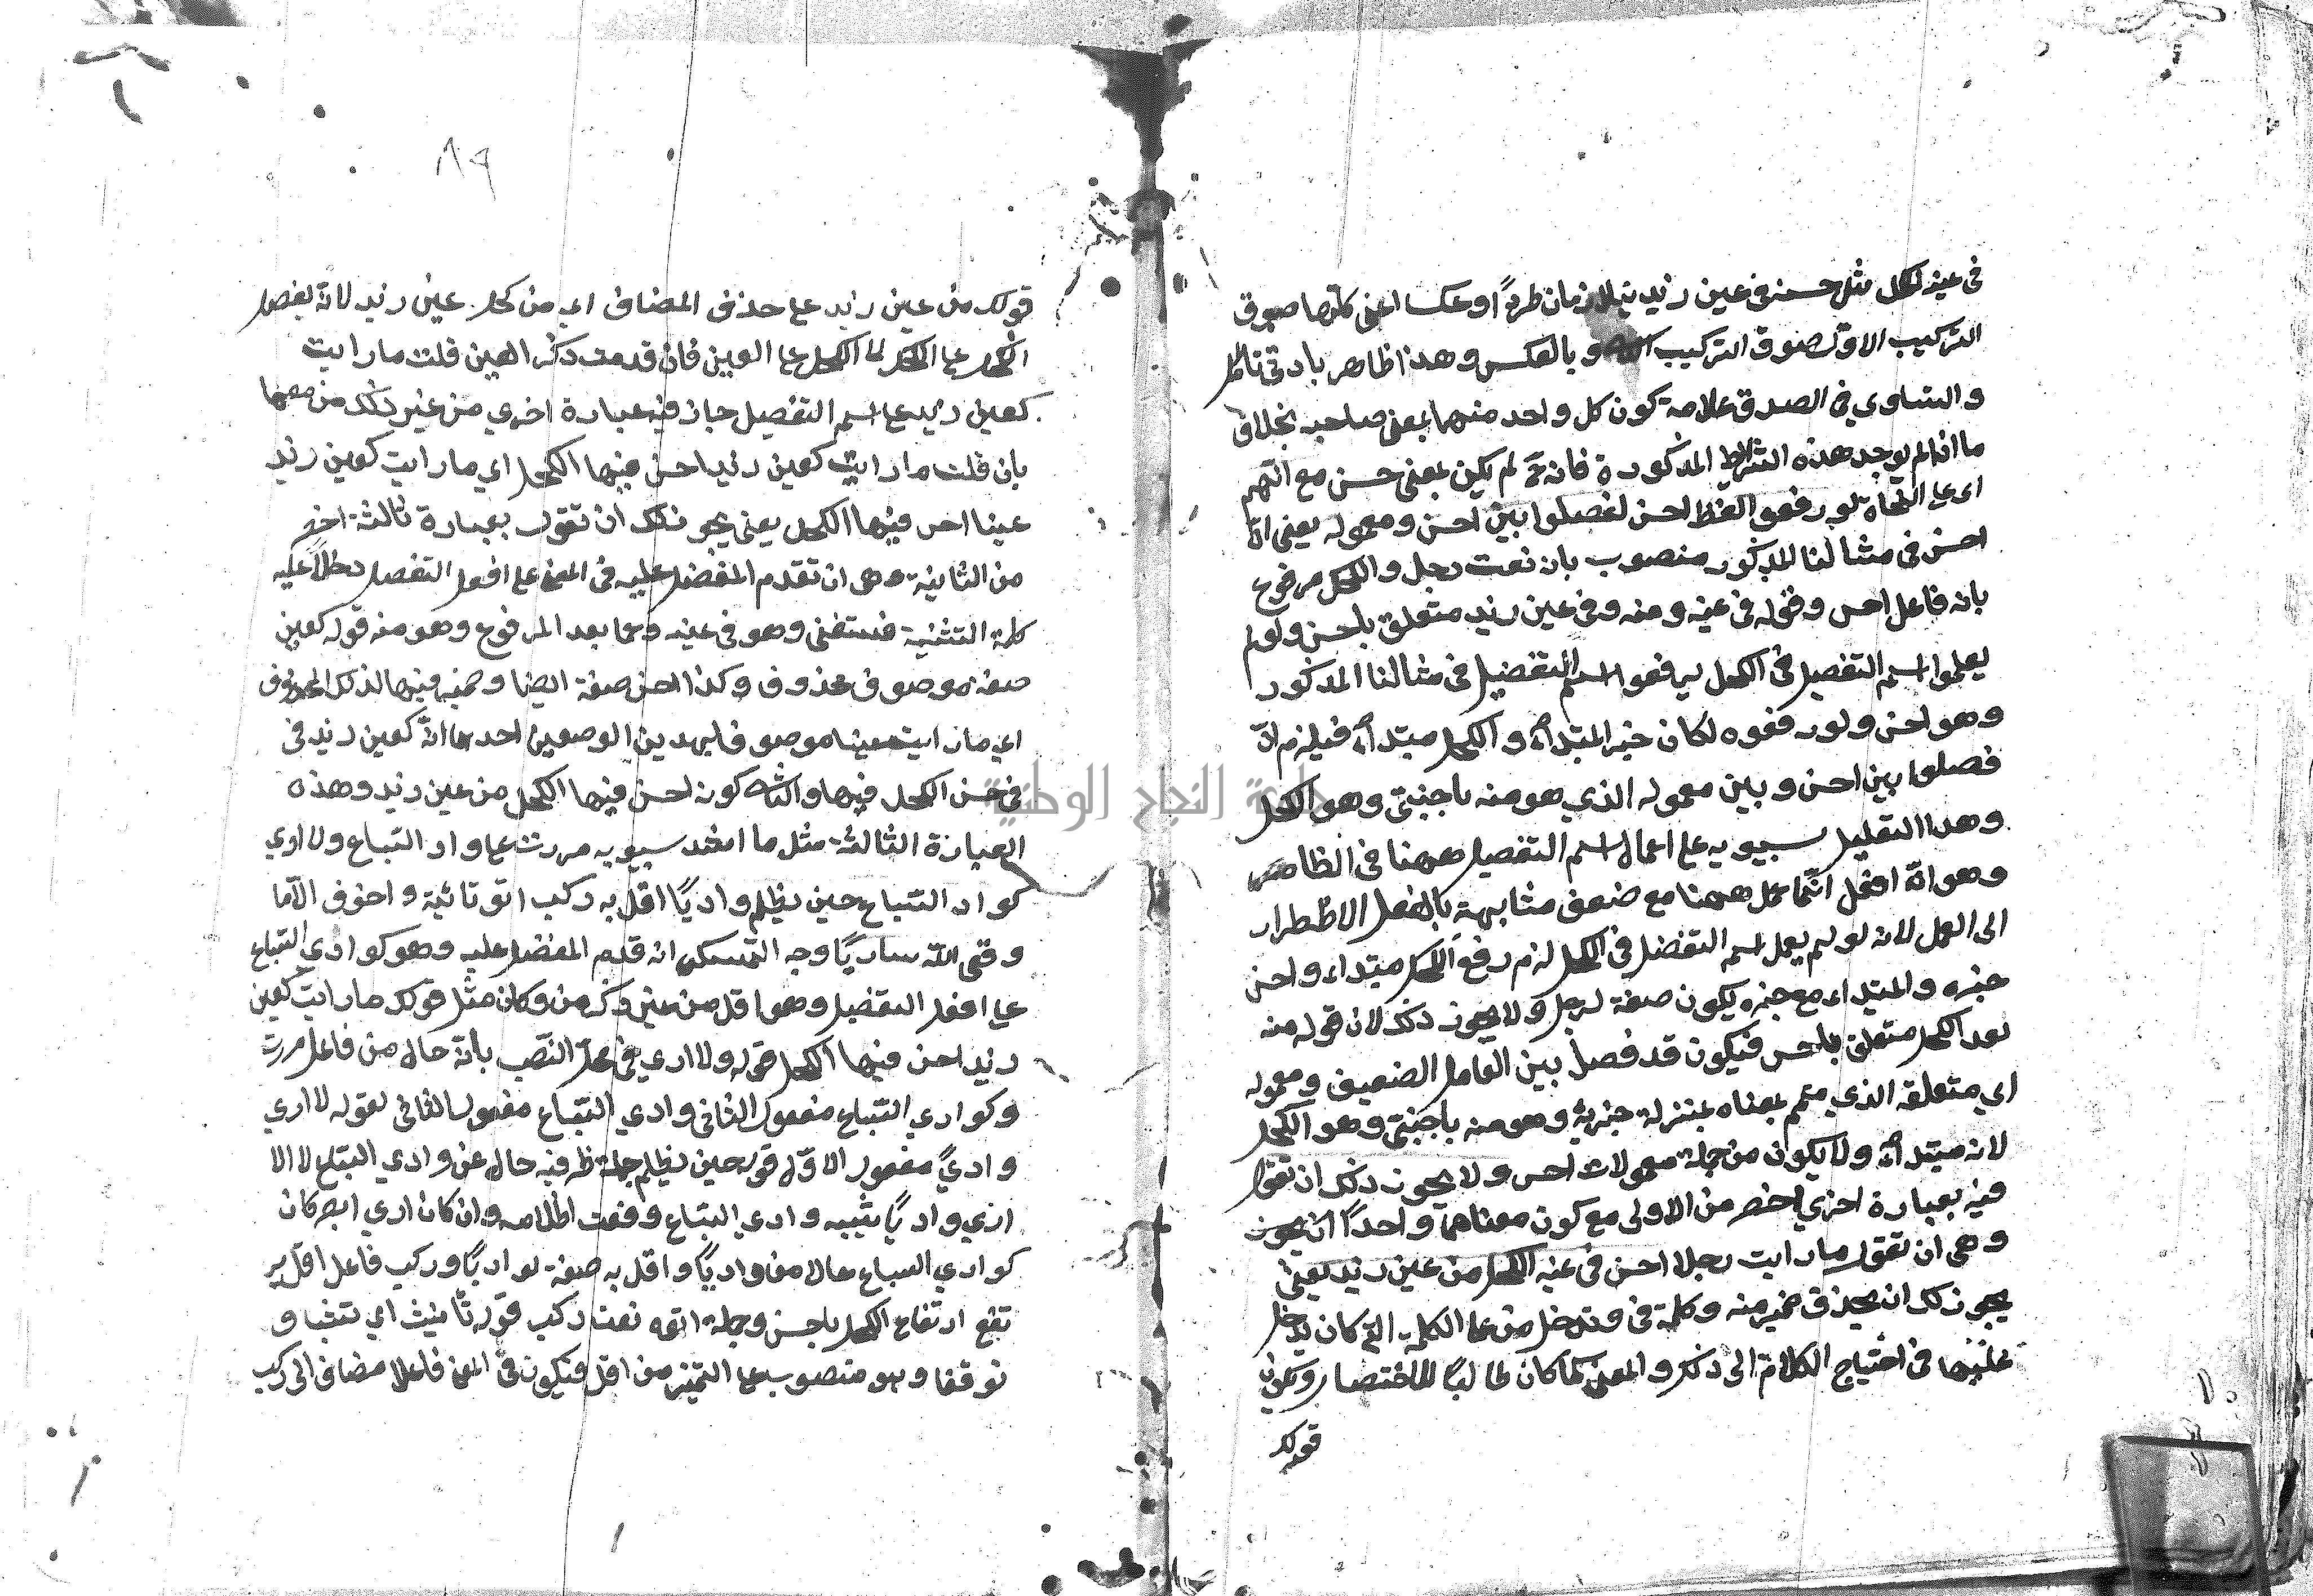 فى عينه الكحل مثل حسنه فى عين زيد يتلازمان طردًا وعكسا اعنى كلما صدق
التركيب الاوّل صدق التركيب وبالعكس وهذا ظاهر بادنى تامّل
والتساوي فى الصدق علامة كون كل واحد منهما بمعنى صاحبه بخلاف
ما اذا لم يوجد هذه الشرائط المذكورة فانه ثمّ لم يكن بمعنى حسن مع انّهم
اى النحاة لو رفعوا لفظ احسن لفصلوا بين احسن ومعموله يعنى انّ
احسن فى مثالنا المذكور منصوب بانه نعت رجل والكحل مرفوع
بانه فاعل احسن وقوله فى عينه ومنه وفى عين زيد متعلق باحسن ولو لم
يعملوا اسم التفضيل فى الكحل لرفعوا اسم التفضيل فى مثالنا المذكور
وهو احسن ولو رفعوه لكان خبر المبتدأ والكحل مبتدأ فيلزم انّ
فصلوا بين احسن وبين معموله الذي هو منه باجنبيّ وهو الكحل
وهذا التعليل سيبويه على اعمال اسم التفضيل ههنا فى الظاهر
وهو انّ افعل انّما عمل ههنا مع ضعف مشابهته بالفعل الاظطرار
الى العمل لانه لو لم يعمل اسم التفضل فى الكحل لزم رفع الكحل مبتداء واحسن
خبره والمبتداء مع خبره يكون صفة لرجل ولا يجوز ذلك لان قوله منه
بعد الكحل متعلق باحسن فيكون قد فصل بين العامل الضعيف ومعموله
اي متعلقه الذي يتم بمعناه بمنزلة جزئه وهو منه باجنبيّ وهو الكحل
لانه مبتدأ ولا يكون من جملة معمولات احسن ولا يجوز ذلك ان تقول
فيه بعبارة اخري اخصر من الاولى مع كون معناهما واحدًا ان يجوز
وهى ان تقول ما رايت رجلا احسن فى عينه الكحل من عين زيد يعنى
يجوز لك ان يحذف ضمير منه وكلمة فى وتدخل من على الكلمة التى كان يدخل
عليها فى احتياج الكلام الى ذلك والمعنى كما كان طالبًا للاختصار
قولك
٨٩
قولك من عين زيد على حذف المضاف اى من كحل عين زيد لانه يفضل
الكحل على الكحل لا الكحل على العين فان قدمت ذكر العين قلت ما رايت
كعين زيد على اسم التفضيل جاز فيه عبارة اخري من غير ذلك من معها
بان قلت ما رايت كعين زيد احسن فيها الكحل اي ما رايت كعين زيد
عينا احسن فيها الكحل يعنى يجوز لك ان تقول بعبارة ثالثة اخر
من الثانية وهى ان تقدم المفضل عليه فى المعنى على افعل التفضل دخلا عليه
كلمة التشبيه فتستغنى وهو فى عينه وعما بعد المرفوع وهو منه قوله كعين
صفة موصوف محذوف وكذا احسن صفة ايضا وضمير فيها لذلك المحذوف
اى ما رايت عينا موصوفا بهذين الوصفين احدهما انّه كعين زيد فى
فى حسن الكحل فيها والثانى كونه احسن فيها الكحل من عين زيد وهذه
العبارة الثالثة مثل ما انشد سيبويه مررت على واد السّباع ولا اري
كواد السّباع حين يظلم واديًا اقل به ركب اتوه تائية واخوف الّا ما
وقى اللّه ساريًا وجه التمسك انه قدم المفضل عليه وهو كوادي السّباع
على افعل التفضيل وهو اقل من غير ذكر من وكان مثل قولك ما رايت كعين
زيد احسن فيها الكحل قوله ولا اري فى محلّ النّصب بانّه حال من فاعل مررت
وكوادي السّباع مفعول الثانى وادي السّباع مفعول الثانى لقوله لا اري
واديً مفعول الاوّل قوله حين يظلم جملة ظرفية حال عن وادي السّباع لا الا
اري واديًا يشبيه وادي السّباع وقت اظلامه وان كان اري ابصر كان
كوادي السباع حالا من واديًا واقل به صفة لواديًا وركب فاعل اقل
تقع ارتفاع الكحل باحسن وجملة اتوه نعت ركب قوله تأنيث اي تثبتا و
توقفا وهو منصوب على التميز من اقل فيكون فى المعنى فاعلا مضاف الى ركب
جامعة النجاح الوطنية